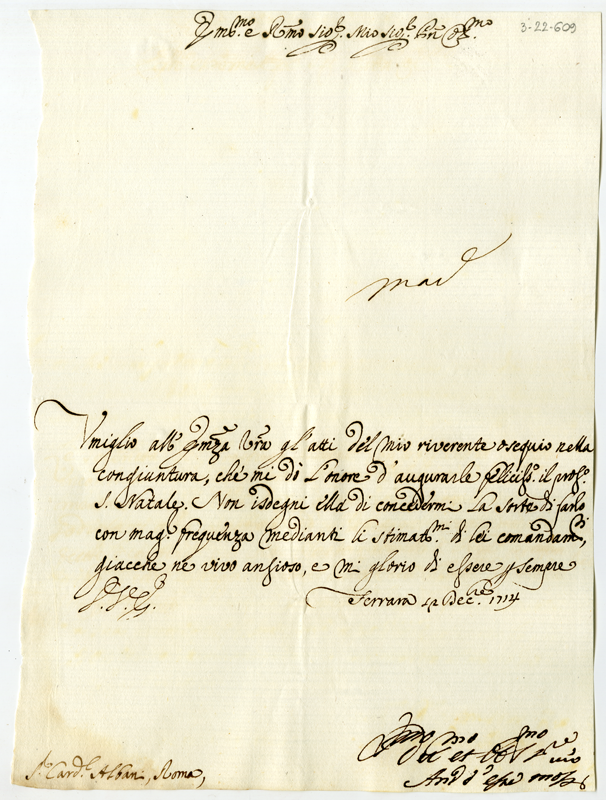 3-22-609
Em.mo e R.mo Sig.r Mio Sig.r P.ron Col.mo
Umiglio all' Em.za V.ra gl' atti del mio riverente ossequio nella
congiuntura, che mi dò l'onore d'augurarle feliciss.o il pross.o
S. Natale. Non isdegni ella di concedermi la sorte di farlo
con mag.r frequenza medianti li stimat.mi di lei comandam.ti,
giacche ne vivo ansioso, e mi glorio di essere p sempre
Ferrara 12 Dec.re 1714
S.r Card.l Albani, Roma,